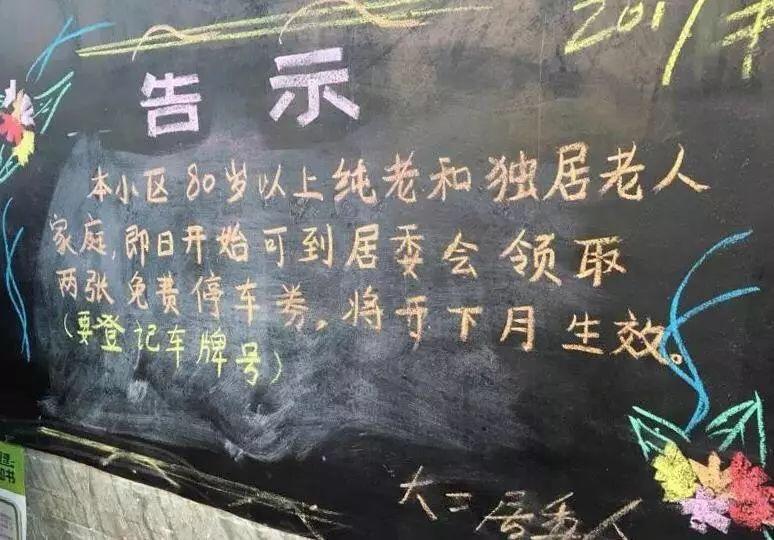 2017年
告示
本小区80岁以上纯老和独居老人
家庭,即日开始可到居委会领取
两张免费停车券。将于下月生效。
(要登记车牌号)
大二居委人